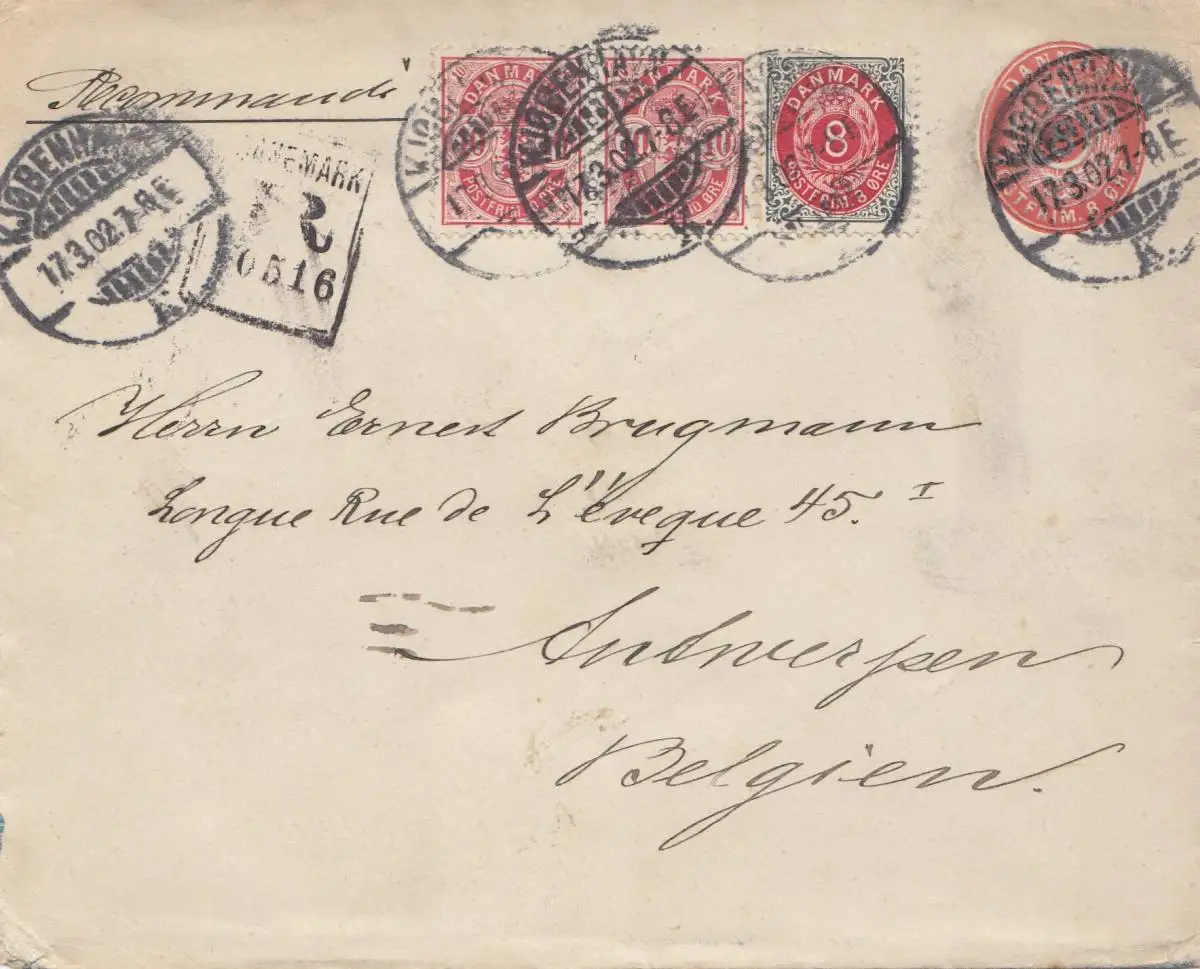 Recommandé
KJØBENHAVN
17.3.02.7-8E
K.
DANEMARK
R
0516
10 DANMARK
POSTFRIM. 10 ØRE
DANMARK 10
10
POSTFRIM. 10 ØRE
KJØBENHAVN
17.3.02.7-8E
K.
DANMARK
8
POSTFRIM. 8 ØRE
DANMARK
8
POSTFRIM. 8 ØRE
KJØBENHAVN
17.3.02.7-8E
K.
Herrn Ernest Brugmann
Longue Rue de L'éveque 45. I
Antwerpen
Belgien.